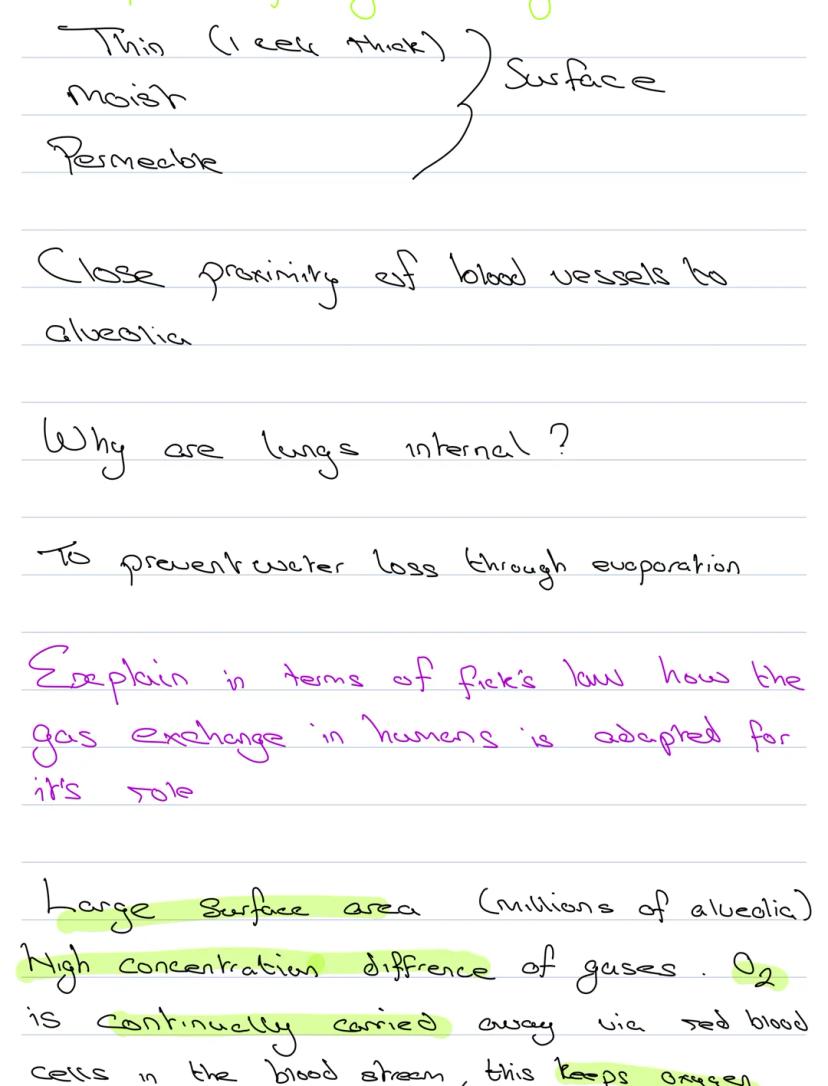 Thin (1 cell thick)
Surface
Moist
Permeable
Close proximity of blood vessels to
alveolia
Why are lungs internal?
To prevent water loss through evaporation
Explain in terms of fick's law how the
gas exchange in humans is adapted for
it's role
Large surface area (millions of alveolia)
High concentration diffrence of gases. O₂
is continually carried away via red blood
cells in the blood stream, this keeps oxygen